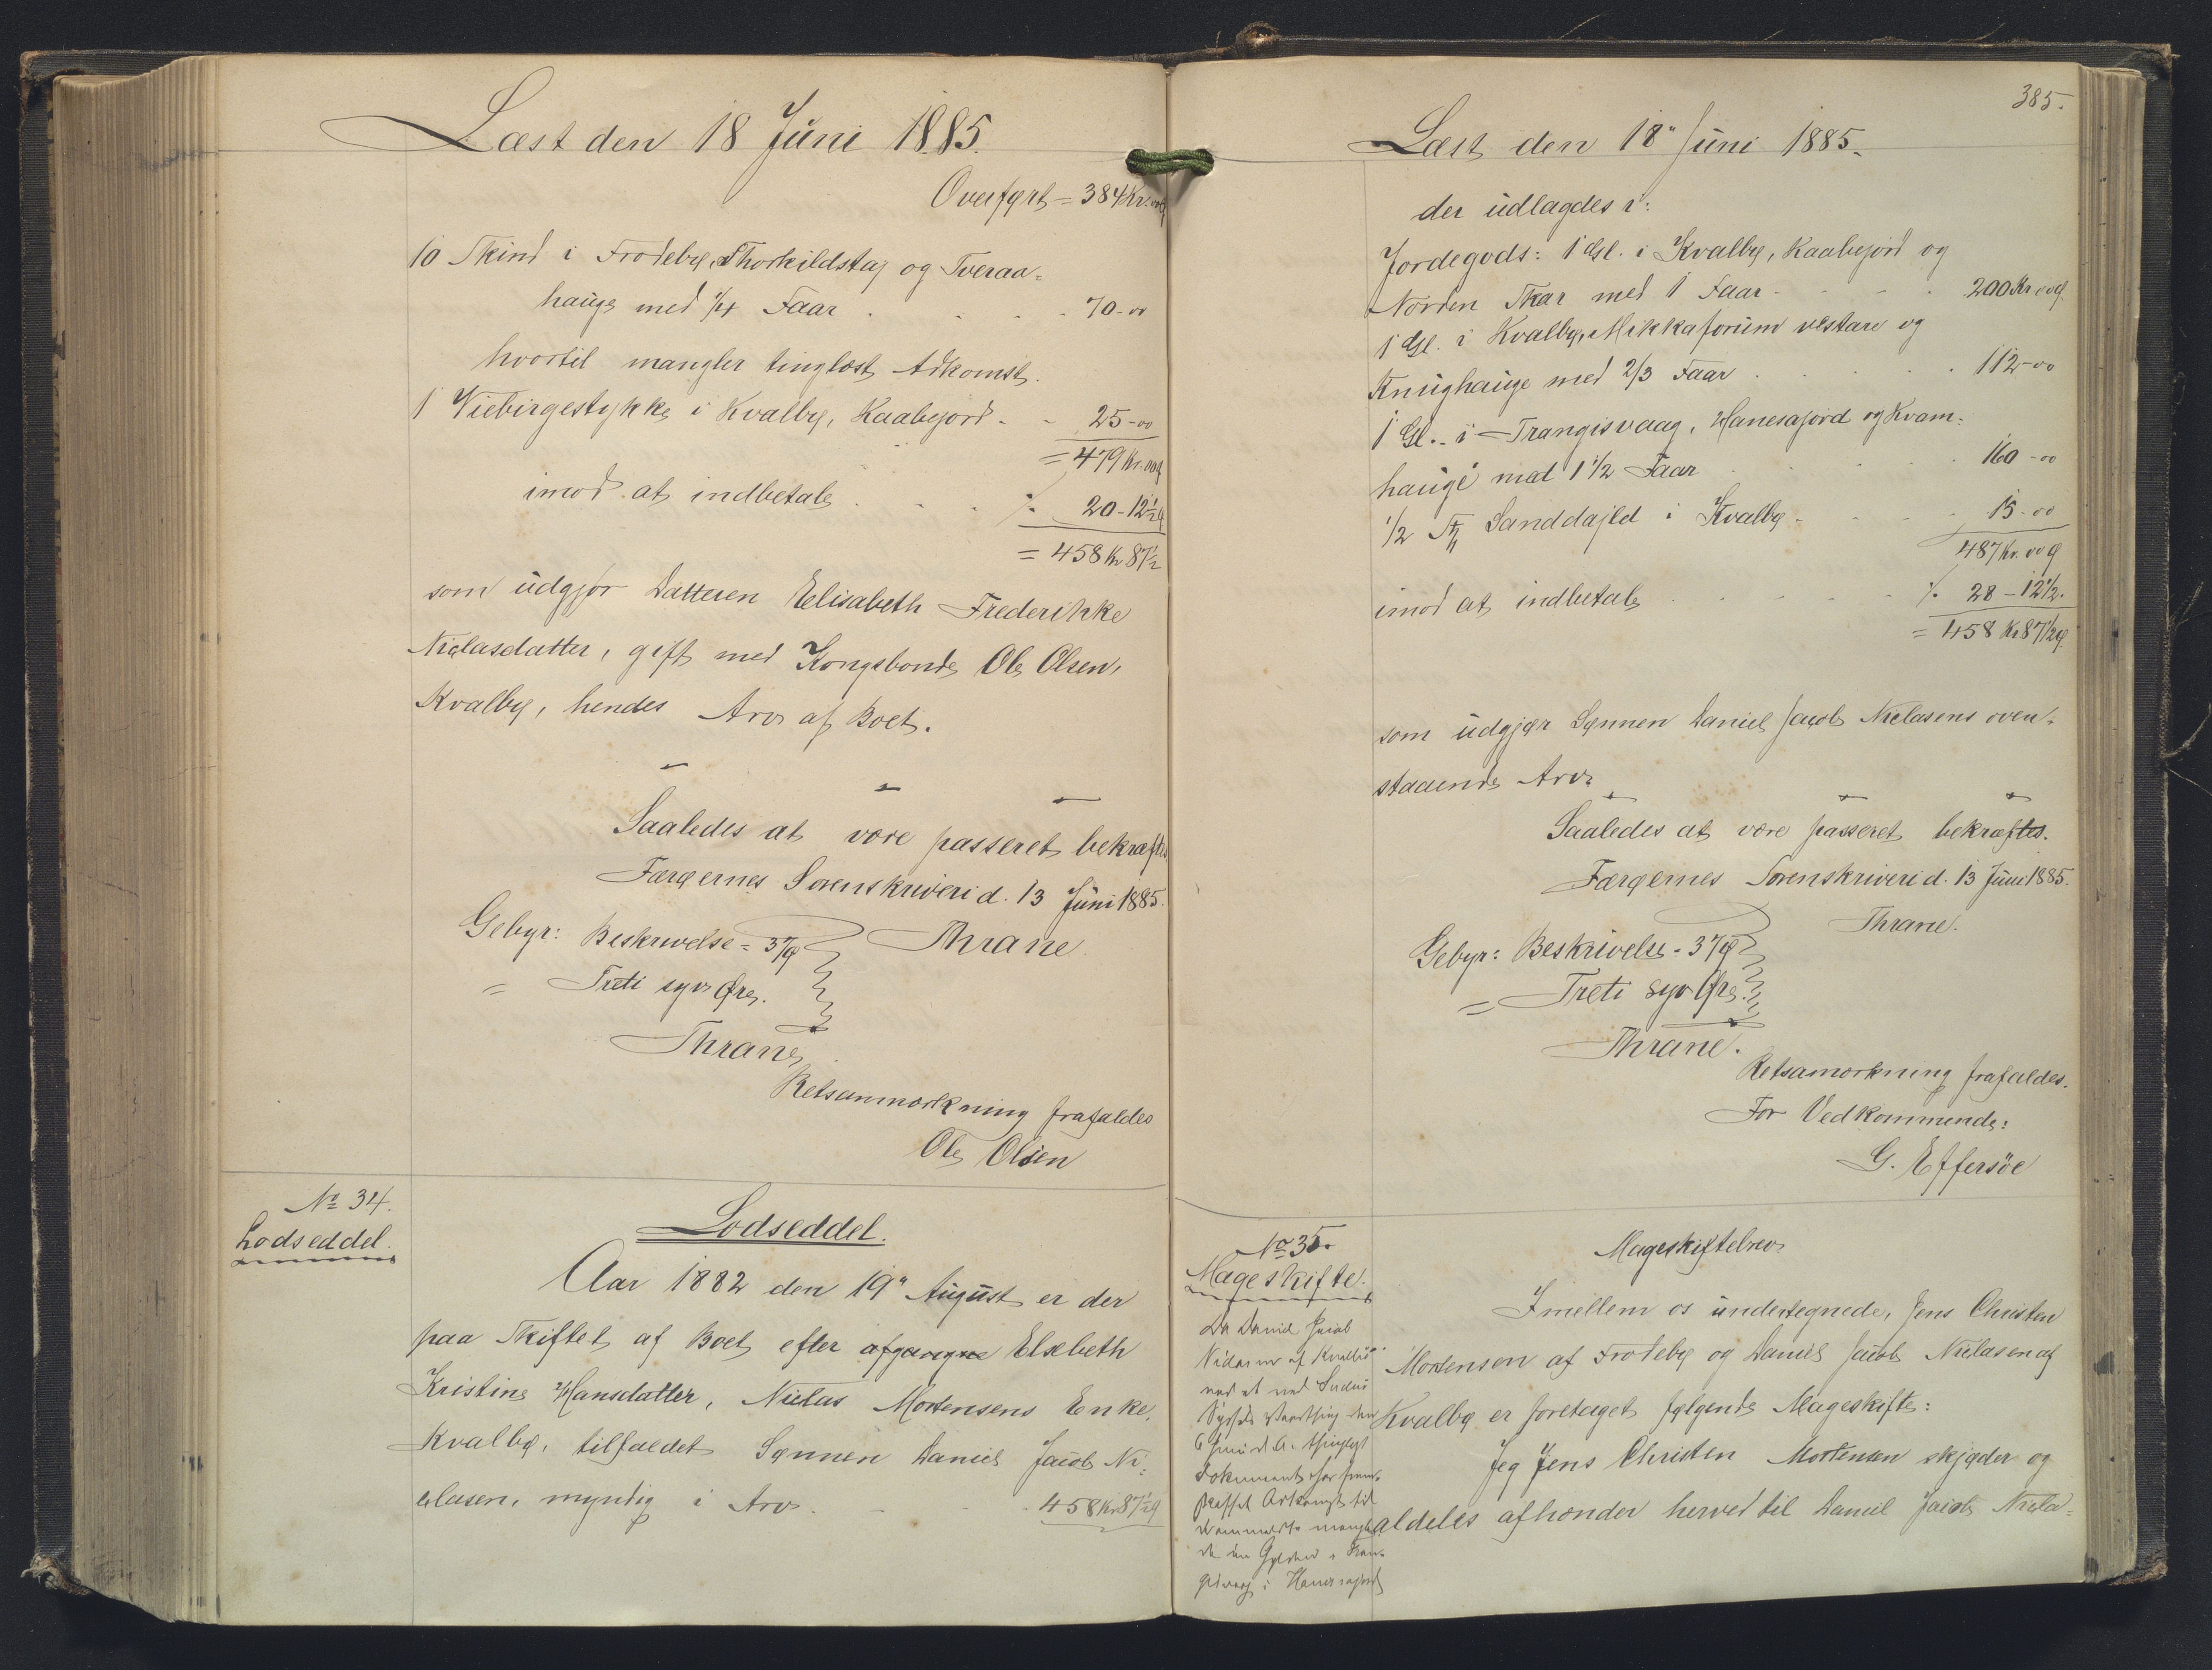 Læst den 18 Juni 1885.
Overført = 384 Kr. 00 Ø
10 Skind i Frodebø, Thorkildstaj og Tveraa=
hauge med 1/4 Faar . . . . 70-00
hvortil mangler tinglæst Adkomst.
1 Viebirgestykke i Kvalbø, Kaabejord - - 25-00
= 479 Kr. 00 Ø
imod at indbetale . . . ./. 20-12½ Ø
= 458 Kr 87½
som udgjør Datteren Elisabeth Frederikke
Niclasdatter, gift med Kongsbonde Ole Olsen,
Kvalbø, hendes Arv af Boet.
Saaledes at være passeret bekræftes
Færøernes Sorenskriveri d. 13 Juni 1885.
Gebyr: Beskrivelse = 37 Ø Thrane.
= Treti syv Øre.
Thrane.
Retsanmærkning frafaldes
Ole Olsen
№ 34.
Lodseddel.
Lodseddel.
Aar 1882 den 19" August er der
paa Skiftet af Boet efter afgangne Elsebeth
Kristine Hansdatter, Niclas Mortensens Enke,
Kvalbø, tilfaldet Sønnen Daniel Jacob Ni=
clasen, myndig i Arv . - - 458 Kr 87½ Ø
385.
Læst den 18" Juni 1885.
der udlagdes i:
Jordegods: 1 Gl. i Kvalbø, Kaabejord og
Norden Skar med 1 Faar - - - . 200 Kr 00 Ø
1 Gl. i Kvalbø, Mikkaforum vestare og
Knughauge med 2/3 Faar . . . . . 112-00
1 Gl. i Trangisvaag, Hanesajord og Kvam=
hauge med 1 1/2 Faar . . . . 160-00
1/2 Sanddajld i Kvalbø - - - . 15-00
487 Kr. 00 Ø
imod at indbetale . . . . . ./. 28-12½.
= 458 Kr 87½ Ø
som udgjør Sønnen Daniel Jacob Niclasens oven=
staaende Arv.
Saaledes at være passeret bekræftes.
Færøernes Sorenskriveri d. 13 Juni 1885.
Thrane.
Gebyr: Beskrivelse = 37 Ø
= Treti syv Øre.
Thrane.
Retsamærkning frafaldes.
For Vedkommende:
G. Effersöe
№ 35.
Mageskifte.
Da Daniel Jacob
af Kvalbø
ved et ved Suderø
Syssels Vaarthing den
6 Juni d. A. thinglyst
Dokument har
Adkomst til
den
en Gylden i Tran-
gisvaag i Hanesajord
Mageskiftebrev
Imellem os undertegnede, Jens Christen
Mortensen af Frodebø og Daniel Jacob Niclasen af
Kvalbø er foretaget følgende Mageskifte:
Jeg Jens Christen Mortensen skjøder og
aldeles afhænder herved til Daniel Jacob Nicla=